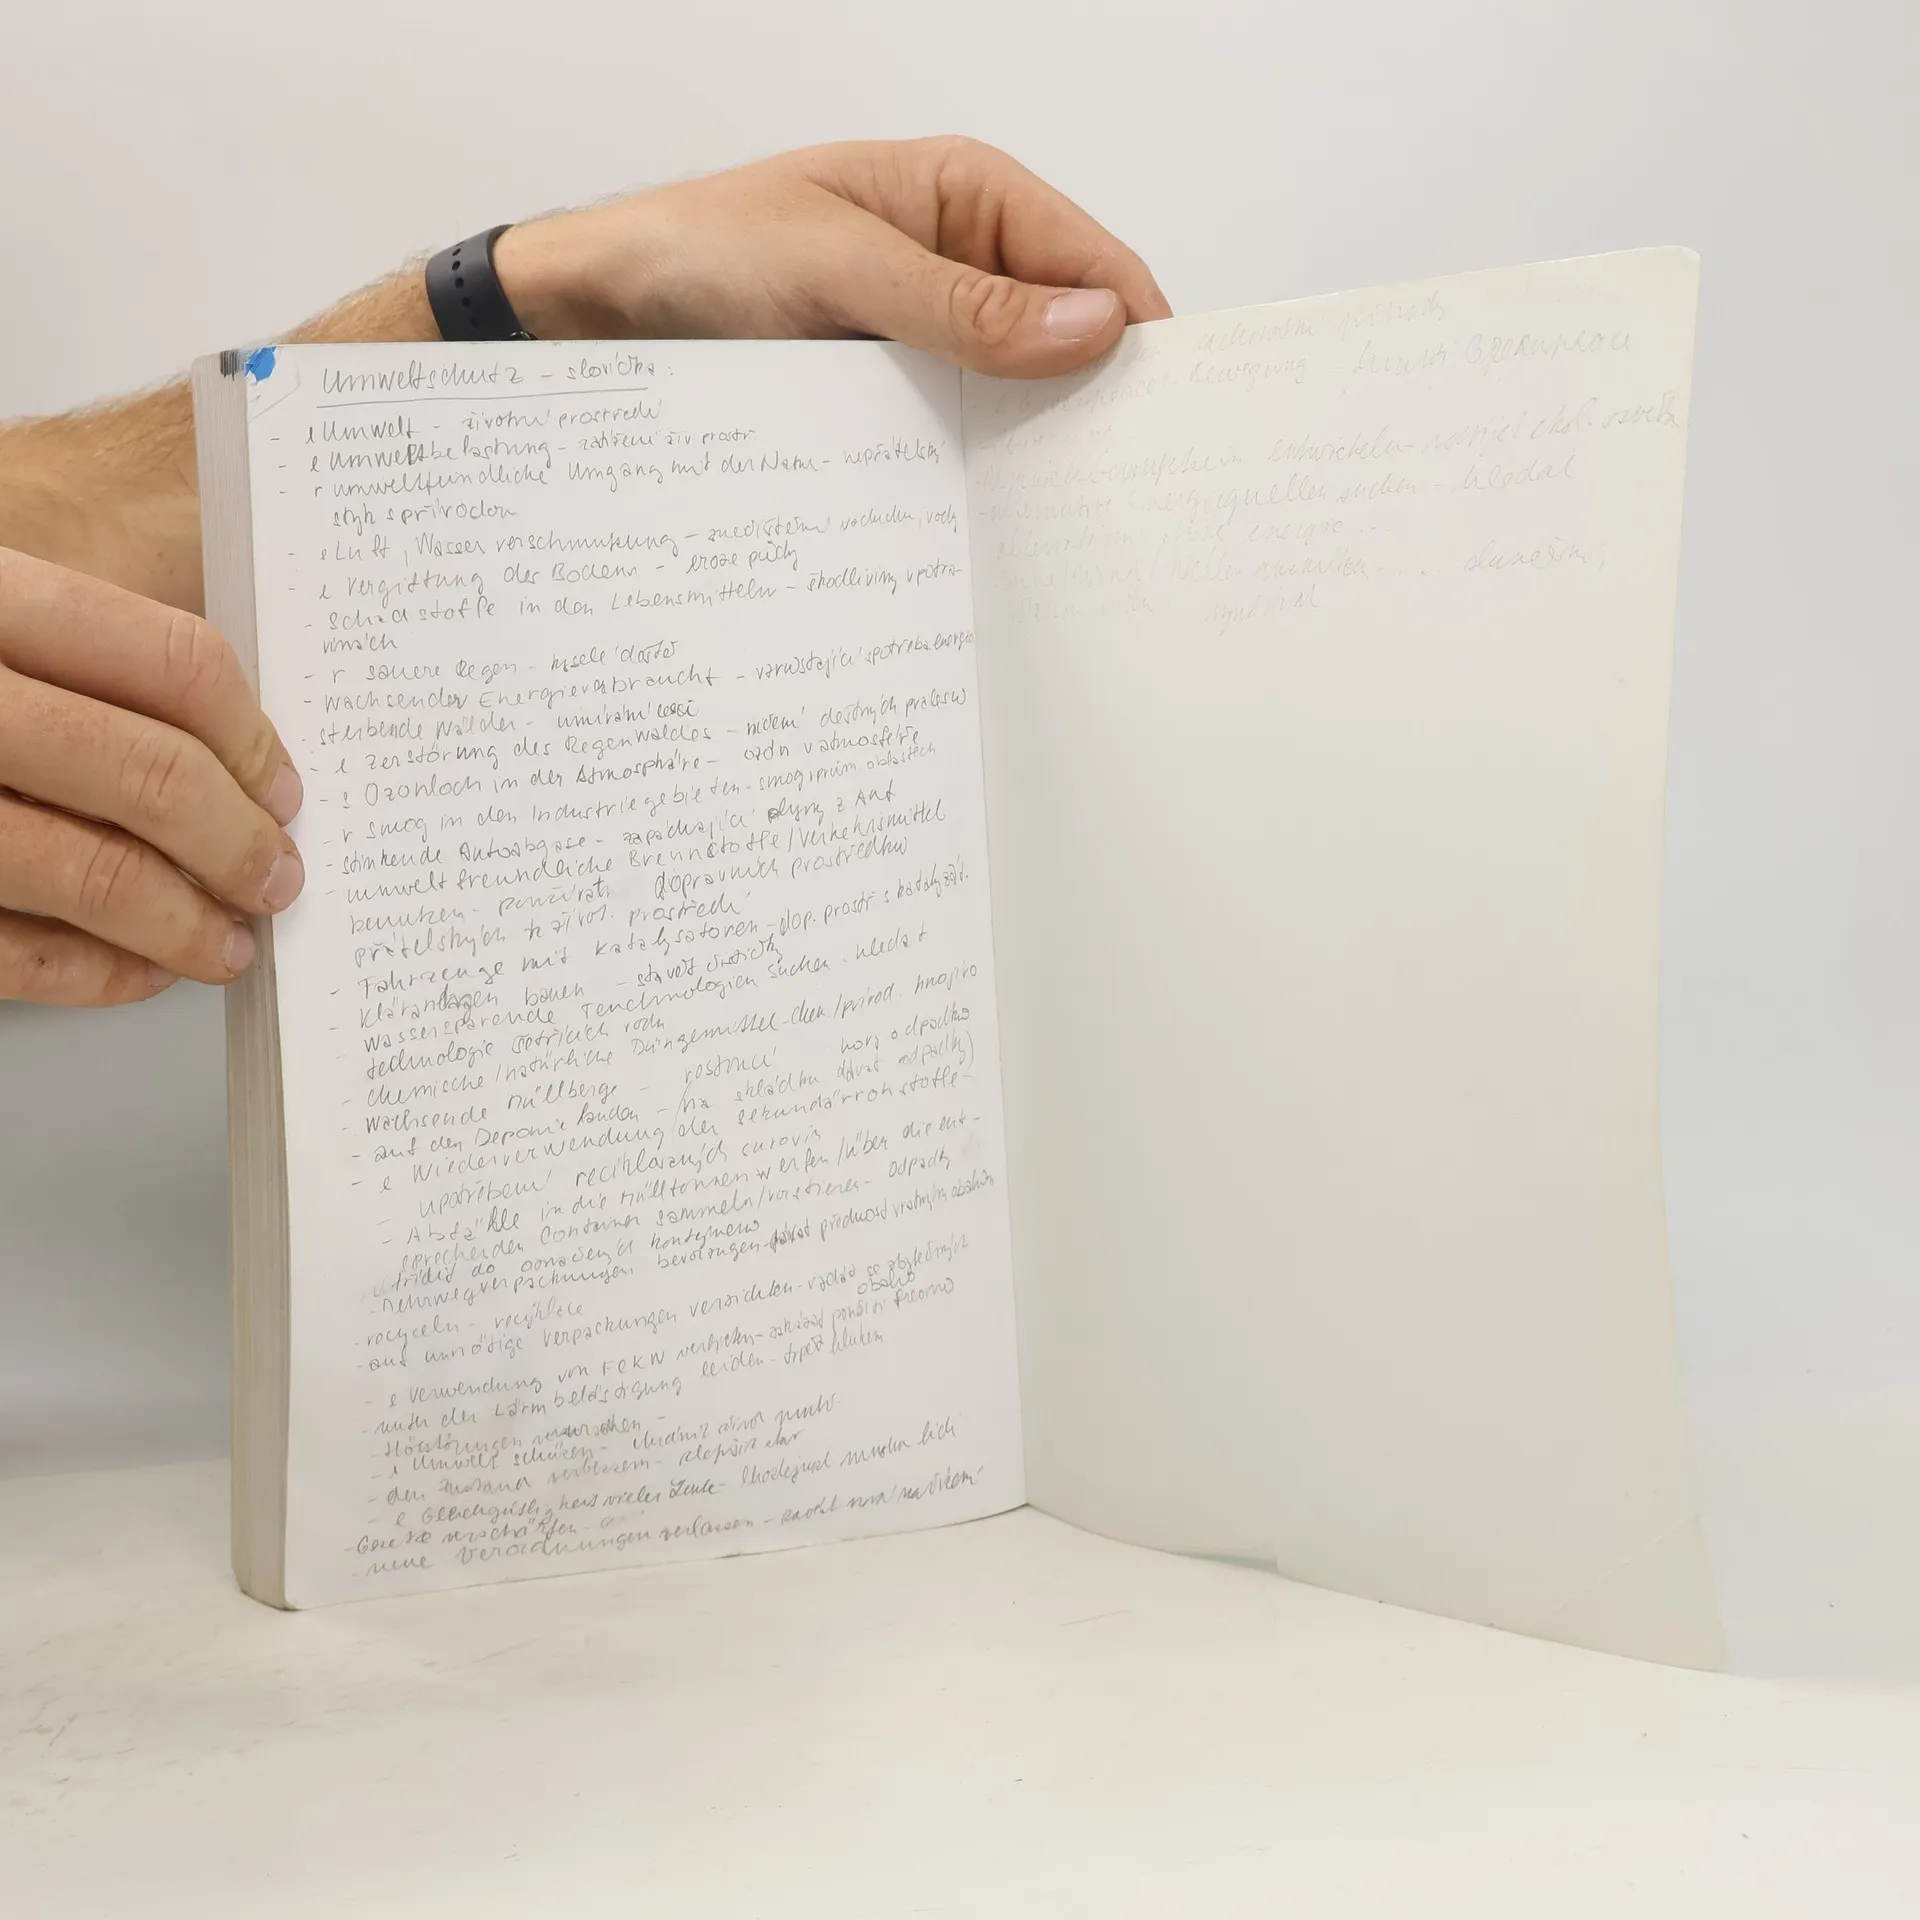 Umweltschutz - slovíčka:
- e Umwelt - životní prostředí
- e Umweltbelastung - zatížení živ. prostř.
- r umweltfeindliche Umgang mit der Natur - nepřátelský
styk s přírodou
- e Luft, Wasserverschmutzung - znečištění vzduchu, vody
- e Vergiftung des Bodens - eroze půdy
- Schadstoffe in den Lebensmitteln - škodliviny v potra-
vinách
- r sauere Regen - kyselé deště
- wachsender Energieverbraucht - vzrůstající spotřeba energie
- sterbende Wälder - umírání lesů
- e Zerstörung des Regenwaldes - ničení deštných pralesů
- s Ozonloch in der Atmosphäre - ozón v atmosféře
- r Smog in den Industriegebieten - smog v prům oblastech
- stinkende Autoabgase - zapáchající plyny z Aut
- umweltfreundliche Brennstoffe/Verkehrsmittel
benutzen - používat dopravních prostředků
přátelských k život. prostředí
- Fahrzeuge mit Katalysatoren - dop. prostř. s katalyzát.
- Kläranlagen bauen - stavět čističky
- wassersparende Tenchnologien suchen - hledat
technologie šetřících vodu
- chemische/natürliche Düngemittel - chem./přírod. hnojivo
- wachsende Müllberge - rostoucí hory odpadků
- auf den Deponie landen - (na skládku dávat odpadky)
- e Wiederverwendung der Sekundärrohstoffe -
upotřebení recyklovaných surovin
- Abfälle in die Mülltonnen werfen/über die ent-
sprechenden Container sammeln/ - odpadky
třídit do označených kontejnerů
- Mehrwegverpackungen bevorzugen - dávat přednost vratným obalům
- recyceln -
- auf unnötige Verpackungen verzichten - vzdát se zbytečných
obalů
- e Verwendung von FCKW verbieten - zakázat použití freonů
- unter der Lärmbelästigung leiden - trpět hlukem
- Hörstörungen verursachen -
- e Umwelt schützen - chránit život
- den Zustand verbessern - zlepšit stav
- e Gleichgültigkeit vieler Leute - lhostejnost mnoha lidí
- Gesetze verschärfen -
- neue Verordnungen verlassen - zavést nová nařízení
zachování přírody
Bewegung - hnutí Greenpeace
entwickeln
Energiequellen suchen - hledat
energie ...